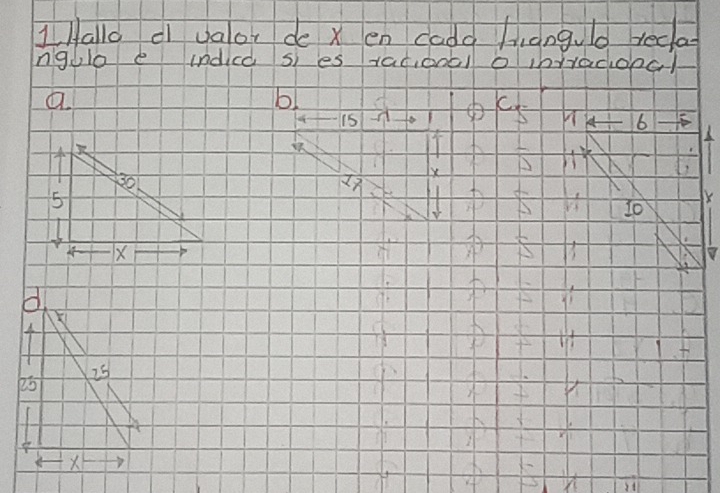 1. Hallo el valor de x en cada triangulo recta-
ngulo e indica si es racional o irracional
a.
b.
c.
15
6
30
17
x
x
5
10
x
d.
25
25
x